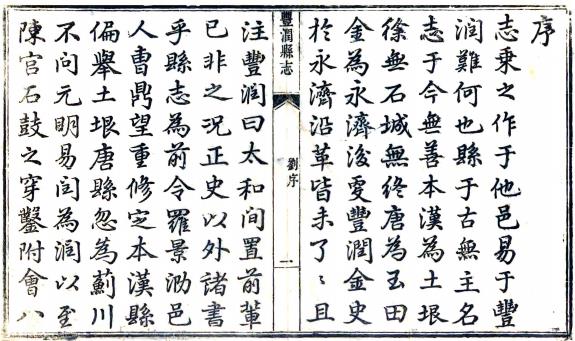 序
志乘之作于他邑易于豐
润難何也縣于古無主名
志于今無善本漢為土垠
徐無石城無終唐為玉田
金為永濟後更豐潤金史
於永濟沿革皆未了〻且
豐潤縣志
劉序
一
注豐润曰太和間置前輩
已非之况正史以外諸書
乎縣志為前令羅景泐邑
人曹鼎望重修定本漢縣
偏舉土垠唐縣忽為薊川
不问元明易闰為润以至
陳宫石鼓之穿鑿附會八